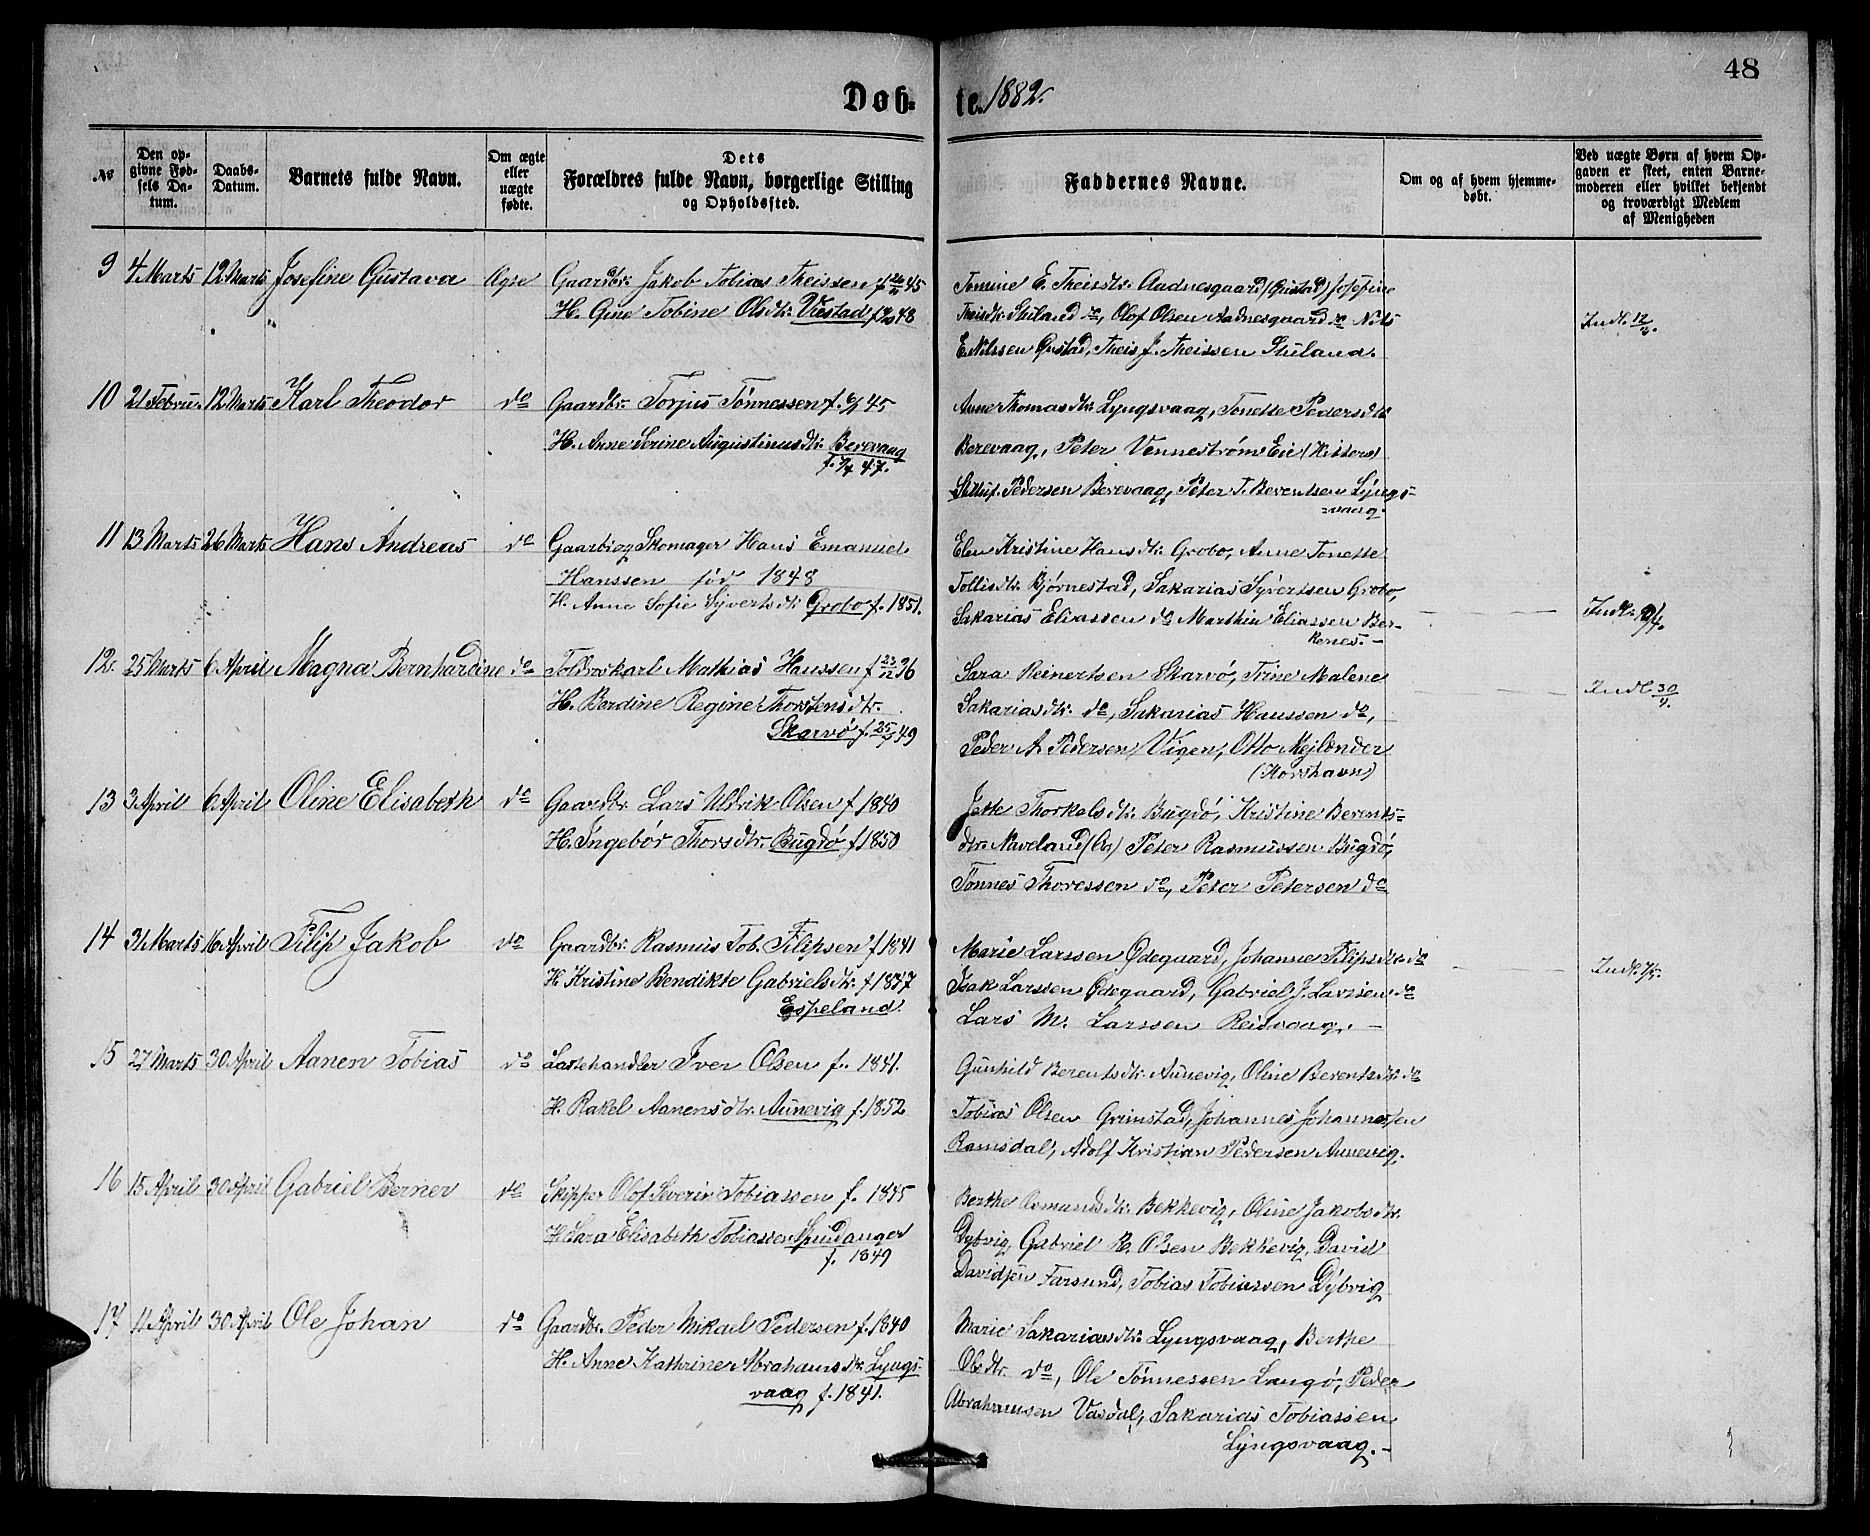 48
Døb- te. 1882.
No
Den opgivne Fødsels Datum.
Daabs-Datum.
Barnets fulde Navn.
Om ægte eller uægte fødte.
Dets Forældres fulde Navn, borgerlige Stilling og Opholdssted.
Faddernes Navne.
Om og af hvem hjemmedøbt.
Ved uægte Børn af hvem Opgaven er skeet, enten Barnemoderen eller hvilket bekjendt og troværdigt Medlem af Menigheden
9 4 Marts 12 Marts Josefine Gustava Ægte Gaardbr. Jakob Tobias Theissen f. 45
H. Gine Tobine Olsdtr. Viestad f. 48
Tomine E. Theisdtr. Aadnesgaard (Qvistad) Josefine
Theisdtr. Stuland do, Olof Olsen Aadnesgaard do Nils
E. Nilssen Qvistad, Theis J. Theissen Stuland.
Indl. 12/3.
10 21 Febru. 12 Marts Karl Theodor do Gaardbr. Torjus Tønnessen f. 45
H. Anne Serine Augustinusdtr. Berevaag
f. 47.
Anne Thomasdtr. Lyngsvaag, Tonette Pedersdtr.
Berevaag, Peter Venneström Eie (Hitterø)
Pedersen Berevaag, Peter T. Berentsen Lyngs-
vaag.
11 13 Marts 26 Marts Hans Andreas do Gaardb. og Skomager Hans Emanuel
Hanssen fød 1848
H. Anne Sofie Syvertsdtr. Grobo f. 1851.
Elen Kristine Hansdtr. Grobo, Anne Tonette
Tollisdtr. Bjørnestad, Sakarias Syvertsen Grobo,
Sakarias Eliassen do Marthin Eliassen Ber-
kenes.
Indl.
12. 25 Marts 6 April Magna Bernhardine do Toldroskarl Mathias Hanssen f. 36
H. Berdine Regine Thorstensdtr.
Skarvø f. 49
Sara Reinertsen Skarvø, Trine Malene
Sakariasdtr. do, Sakarias Hanssen do,
Peder A. Pedersen Vigen, Otto Mejlænder
(Korshavn)
Indl. 30/9.
13 3 April 6 April Oline Elisabeth do Gaardbr. Lars Uldrik Olsen f 1840
H. Ingebør Thorsdtr. Bugdø f 1850
Jette Thorkelsdtr. Bugdø, Kristine Berents-
dtr. Naveland Peter Rasmussen Bugdø,
Tønnes Thoressen do, Peter Petersen do
14 31 Marts 16 April Filip Jakob do Gaardbr. Rasmus Tob. Filipsen f 1841
H Kristine Bendikte Gabrielsdtr. f 1847
Espeland.
Marie Larssen Ødegaard, Johanne Filipsdtr. do
Isak Larssen Ødegaard, Gabriel J. Larssen do
Lars M. Larssen Reisvaag.
Indl.
15 27 Marts 30 April Aanen Tobias do Lastehandler Iver Olsen f. 1841.
H. Rakel Aanensdtr. Aunevig f. 1852
Gunhild Berentsdtr. Aunevig, Oline Berentsdtr. do
Tobias Olsen Grimstad, Johannes Johannessen
Ramsdal, Adolf Kristian Pedersen Aunevig.
16 15 April 30 April Gabriel Berner do Skipper Olof Severin Tobiassen f. 1845
H. Sara Elisabeth Tobiassen Spindanger
f. 1849
Berthe Osmundsdtr. Bekkevig, Oline Jakobsdtr.
Dybvig, Gabriel R. Olsen Bekkevig, David
Davidsen Farsund, Tobias Tobiassen Dybvig
17 4 April 30 April Ole Johan do Gaardbr. Peder Mikael Pedersen f. 1840
H. Anne Kathrine Abrahamsdtr. Lyngs-
vaag f. 1841.
Marie Sakariasdtr. Lyngsvaag, Berthe
Olsdtr. do, Ole Tønnessen Langø, Peder
Abrahamsen Vasdal, Sakarias Tobiassen
Lyngsvaag.